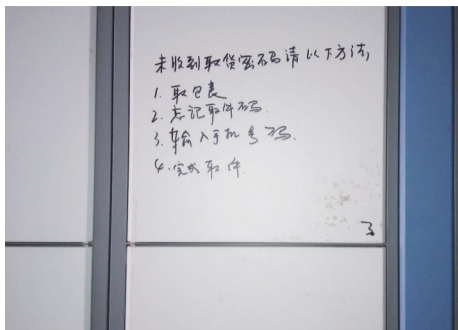 未收到取货密码请以下方法,
1. 取包裹
2. 忘记取件码.
3. 输入手机号码.
4. 完成取件.
3